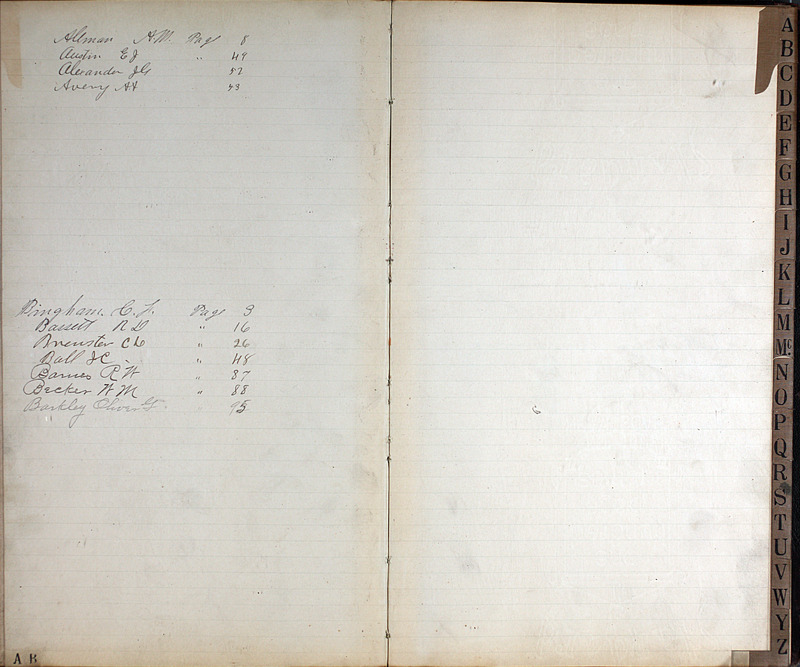 Aleman A.M. Page 8
Austin E J " 49
Alexander J G 52
Avery A H 53
Bingham. C. F. Page 3
Bassett R D " 16
Brewster C L " 26
Ball J C. " 48
Barnes R H " 87
Becker H M " 88
Barkley Oliver G. " 95
A B
A
B
C
D
E
F
G
H
I
J
K
L
M
Mc
N
O
P
Q
R
S
T
U
V
W
Y
Z